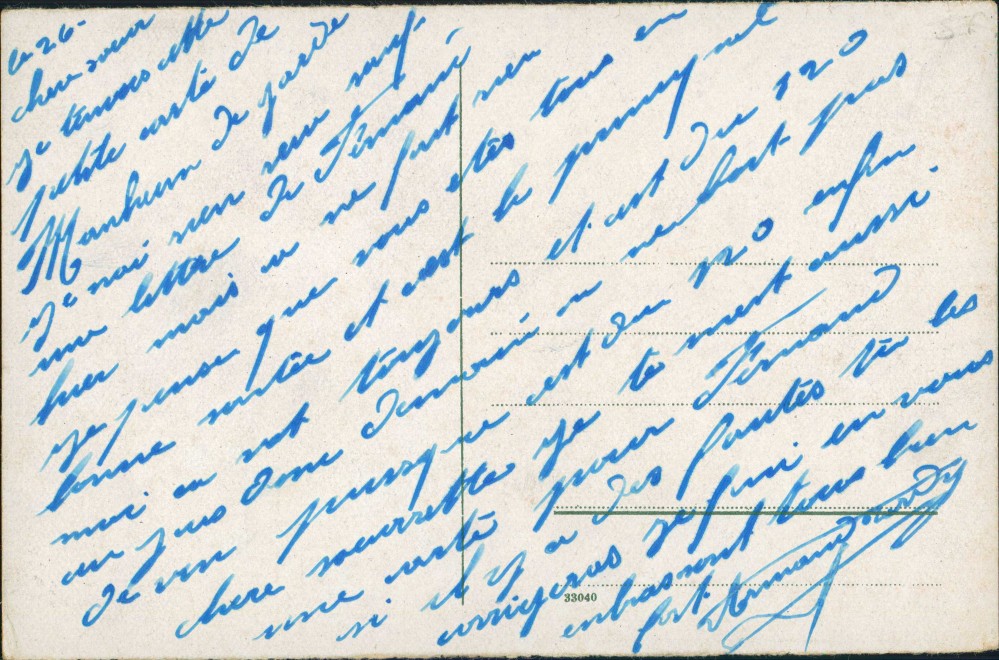 le 26-
chere soeur
je tenvois cette
petite carté de
Manheim de garde
je nai rien reru rauf.
une lettre de Fernand
hier mais sa ne fait rien
je pense que vous etés tous en
bonne santée et cest le principal
moi sa vat toujours et est du 120
au jus donc demain sa ne bat pas
de ven puisque est du 120 enfin
chere sourrette je te met aussi
une carté pour Fernand
si il y a des fautés tu les
corrigeras je fini en vous
enbrassent tous bien
fort. Armand
33040